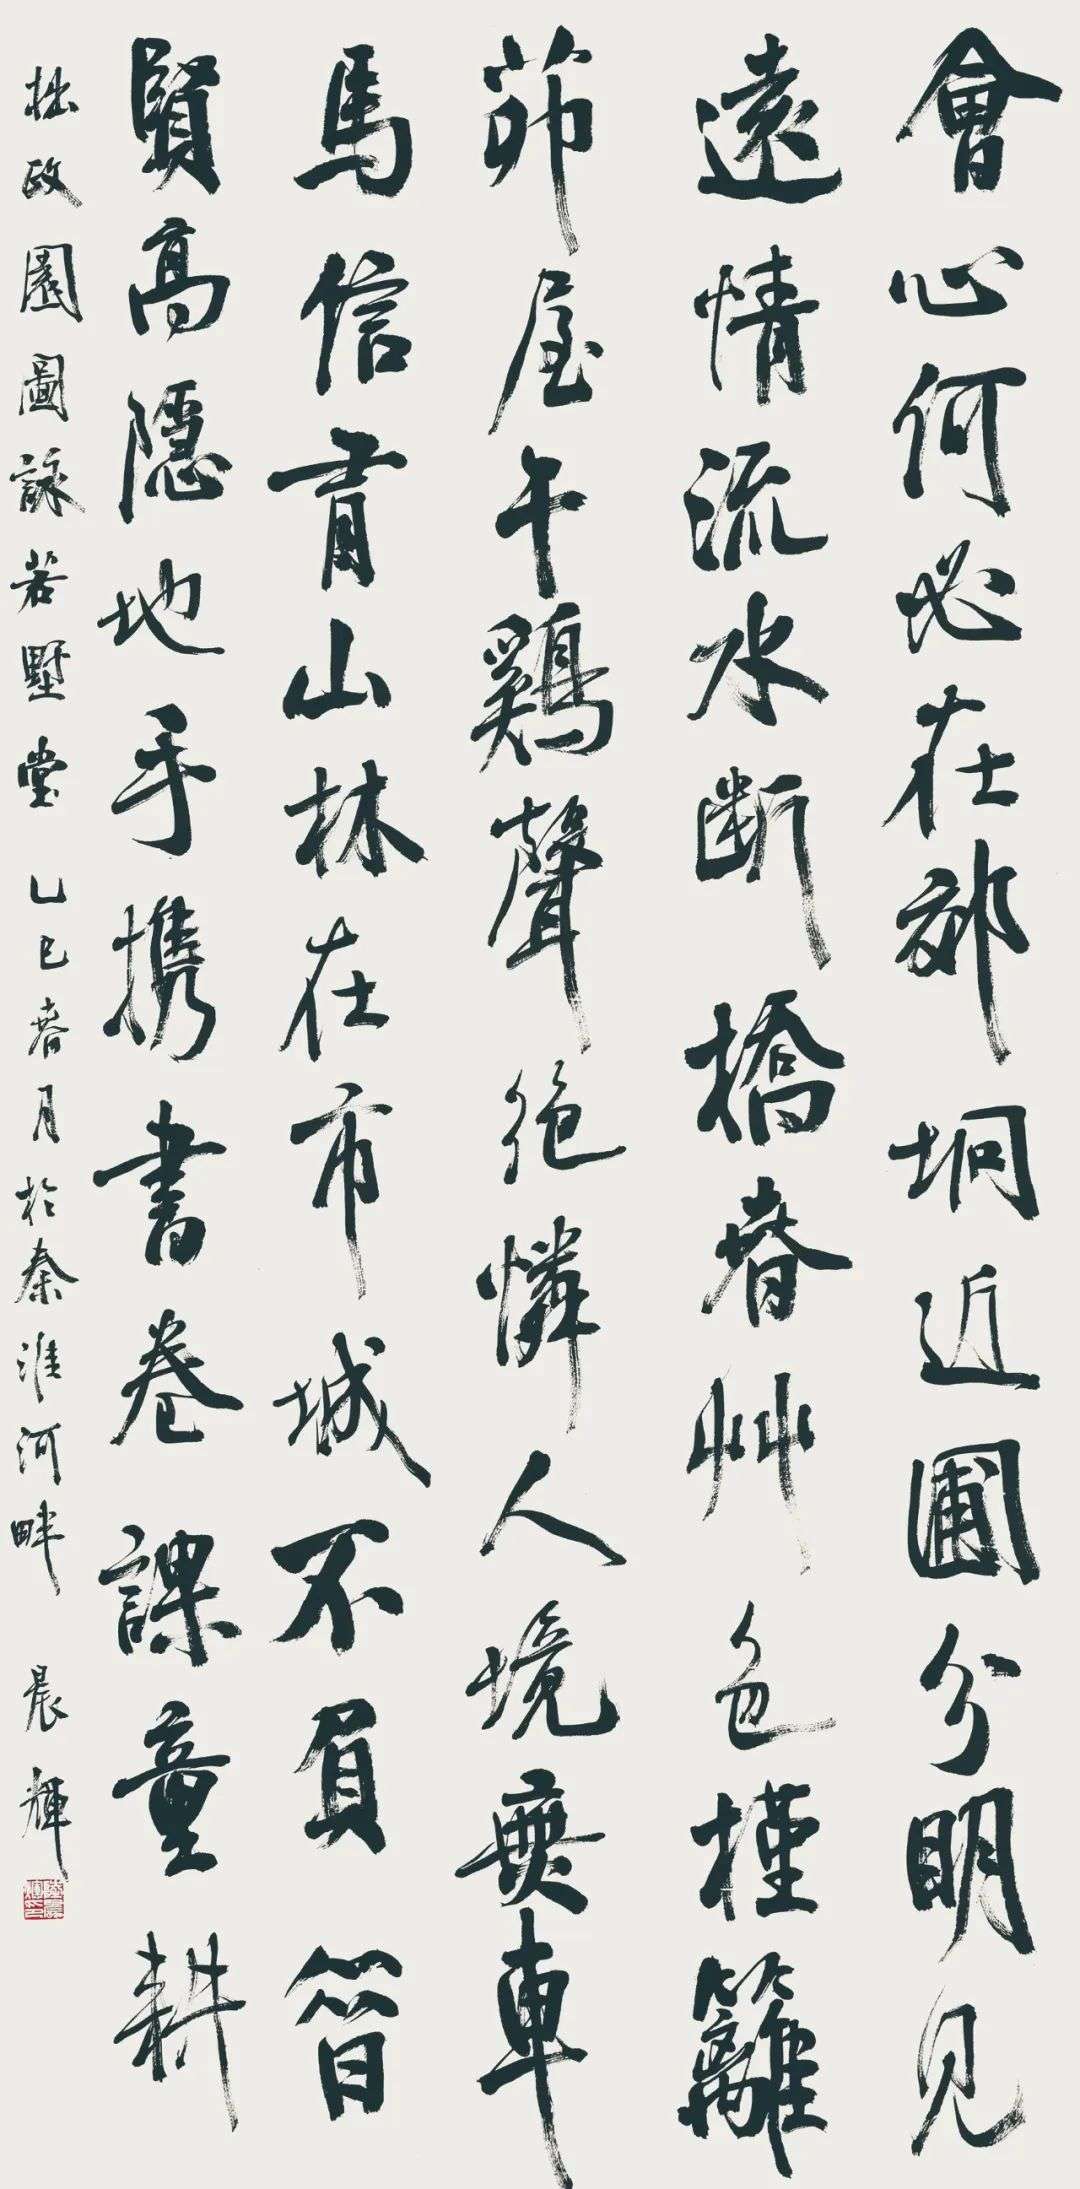 會心何必在郊坰近圃分明見
遠情流水断橋春艸色槿籬
茆屋午鷄聲絶憐人境無車
馬信有山林在市城不負昔
賢高隱地手携書卷課童耕
拙政園圖詠若墅堂 乙巳春月於秦淮河畔 晨輝